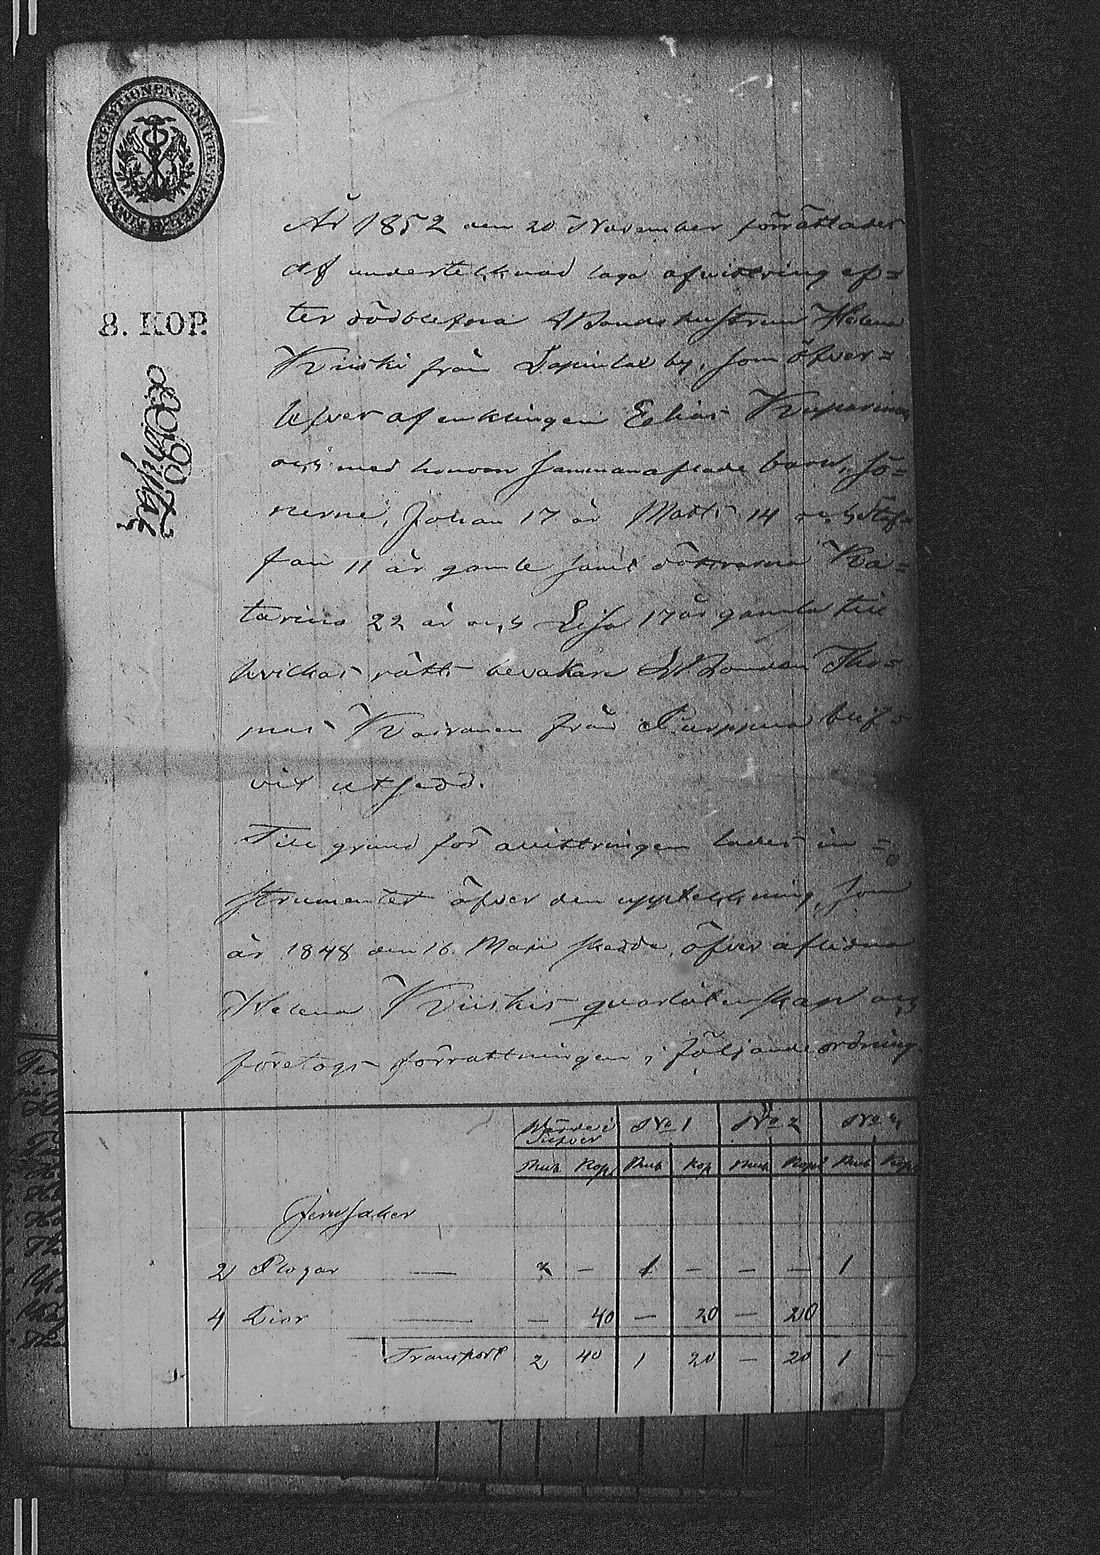 8. KOP.
År 1852 den 20 November förrättades
af undertecknad laga afvittring ef=
ter dödblefna Bondehustrun Helena
Kiiski från by, som öfver=
lefver af enklingen Elias
och med honom sammanaflade barn, Sö=
nerne, Johan 17 år Matts 14 och Staf=
fan 11 år gamle samt döttrarna Ka=
tarina 22 år och Lisa 17 år gamla till
hvilkas rätts bevakare Bonden Tho=
mas Kairanen från blif=
vit utsedd.
Till grund för avittringen lades in=
strumentet öfver den uppteckning, som
år 1848 den 16 Maji skedde, öfver aflidna
Helena Kiiskis qvarlåtenskap och
företogs förrättningen i följande ordning.
Värde i Silfver No 1 No 2 No 3
Rub Kop Rub Kop Rub Kop Rub Kop
Jernsaker
2 Plogar — 2 — 1 — — — 1
4 Lior — — 40 — 20 — 20
Transport 2 40 1 20 — 20 1 —